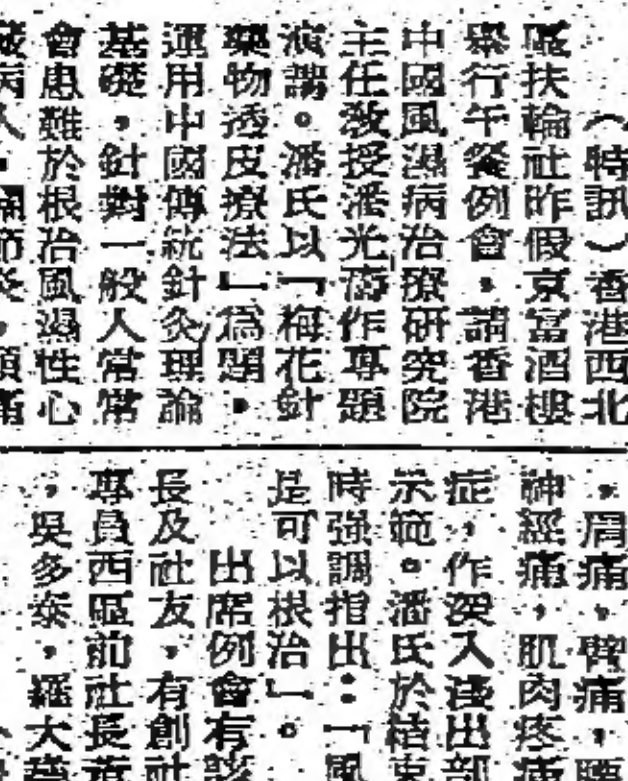 （特訊）香港西北
區扶輪社昨假京富酒樓
舉行午餐例會，請香港
中國風濕病治療研究院
主任教授潘光濤作專題
演講。潘氏以「梅花針
藥物透皮療法」爲題，
運用中國傳統針灸理論
基礎，針對一般人常常
會患難於根治風濕性心
臟病人
，周痛，臂痛，腰
神經痛，肌肉疼痛
症，作深入淺出部
示範。潘氏於結束
時強調指出：「風
是可以根治」。
出席例會有該
長及社友，有創社
專員西區前社長黃
，吳多泰，羅大